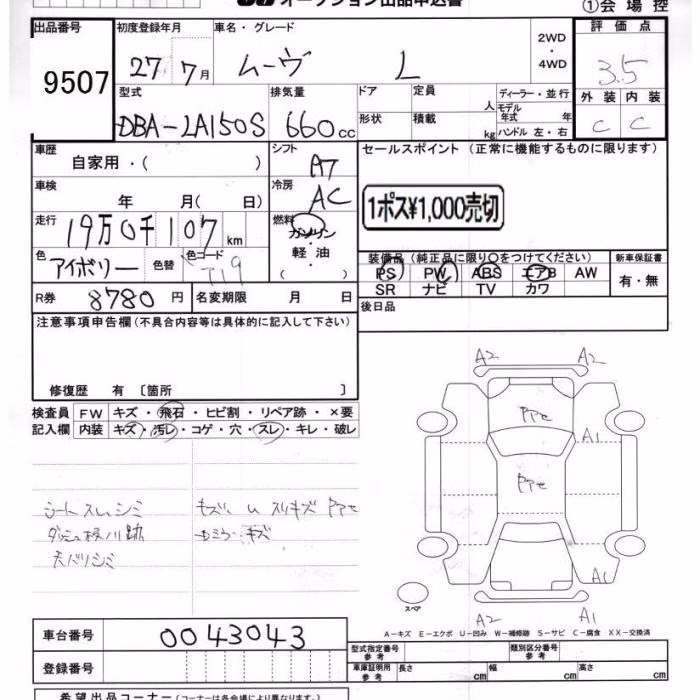 オークション出品申込書 ①会場控
出品番号 初度登録年月 車名・グレード 2WD・4WD 評価点
9507 27年7月 ムーヴ L 3.5
型式 排気量 ドア 定員 人 ディーラー・並行 外装 内装
DBA-LA150S 660cc 形状 積載 kg モデル年式 年 ハンドル 左・右 C C
車歴 自家用・( ) シフト AT セールスポイント (正常に機能するものに限ります)
車検 年 月( 日) 冷房 AC
1ポス¥1,000売切
走行 19万0千107km 燃料 ガソリン・軽油・( )
色 アイボリー 色替 色コード T19
装備品 (純正品に限り○をつけてください) 新車保証書
PS PW ABS エアB AW 有・無
SR ナビ TV カワ
R券 8780円 名変期限 月 日 後日品
注意事項申告欄 (不具合内容等は具体的に記入して下さい)
修復歴 有 〔箇所 〕
検査員 FW キズ・飛石・ヒビ割・リペア跡・×要
記入欄 内装 キズ・汚レ・コゲ・穴・スレ・キレ・破レ
シートスレ、シミ キズ、U スリキズ PPセ
天バリシミ
A2 A2
PPセ
A1
PPセ
A1
スペア
A2 A1
A-キズ E-エクボ U-凹み W-補修跡 S-サビ C-腐食 XX-交換済
車台番号 0043043
型式指定番号 参考 類別区分番号 参考
登録番号
車庫証明用 参考 長さ cm 幅 cm 高さ cm
希望出品コーナー (コーナーは各会場により異なります。)